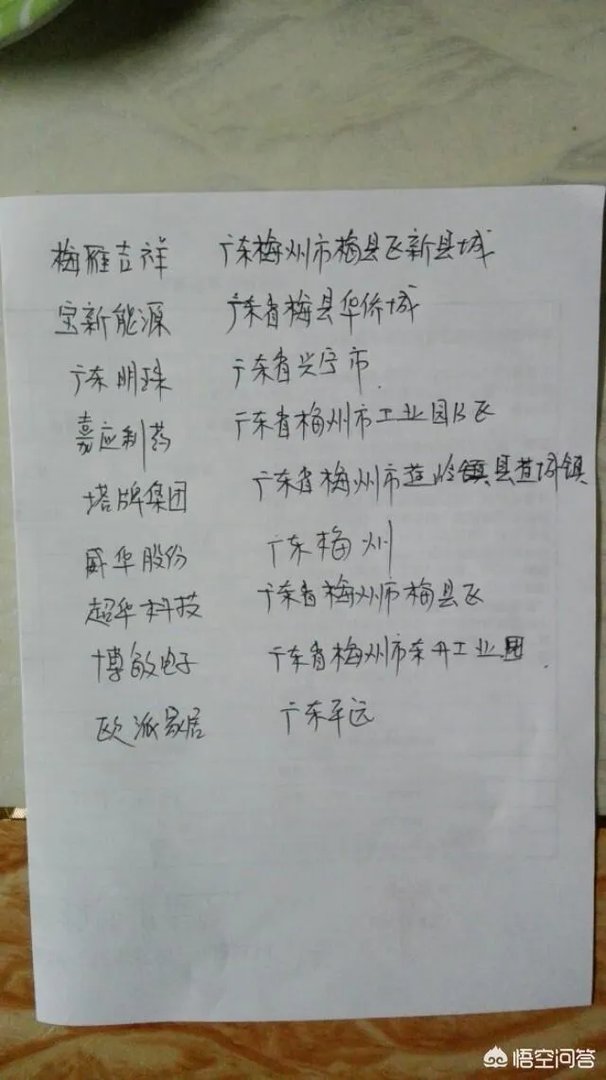 梅雁吉祥 广东梅州市梅县区新县城
宝新能源 广东省梅县华侨城
广东明珠 广东省兴宁市
嘉应制药 广东省梅州市工业园B区
塔牌集团 广东省梅州市蕉岭镇县蕉城镇
威华股份 广东梅州
超华科技 广东省梅州市梅县区
博敏电子 广东省梅州市东升工业园.
欧派家居 广东平远
悟空问答